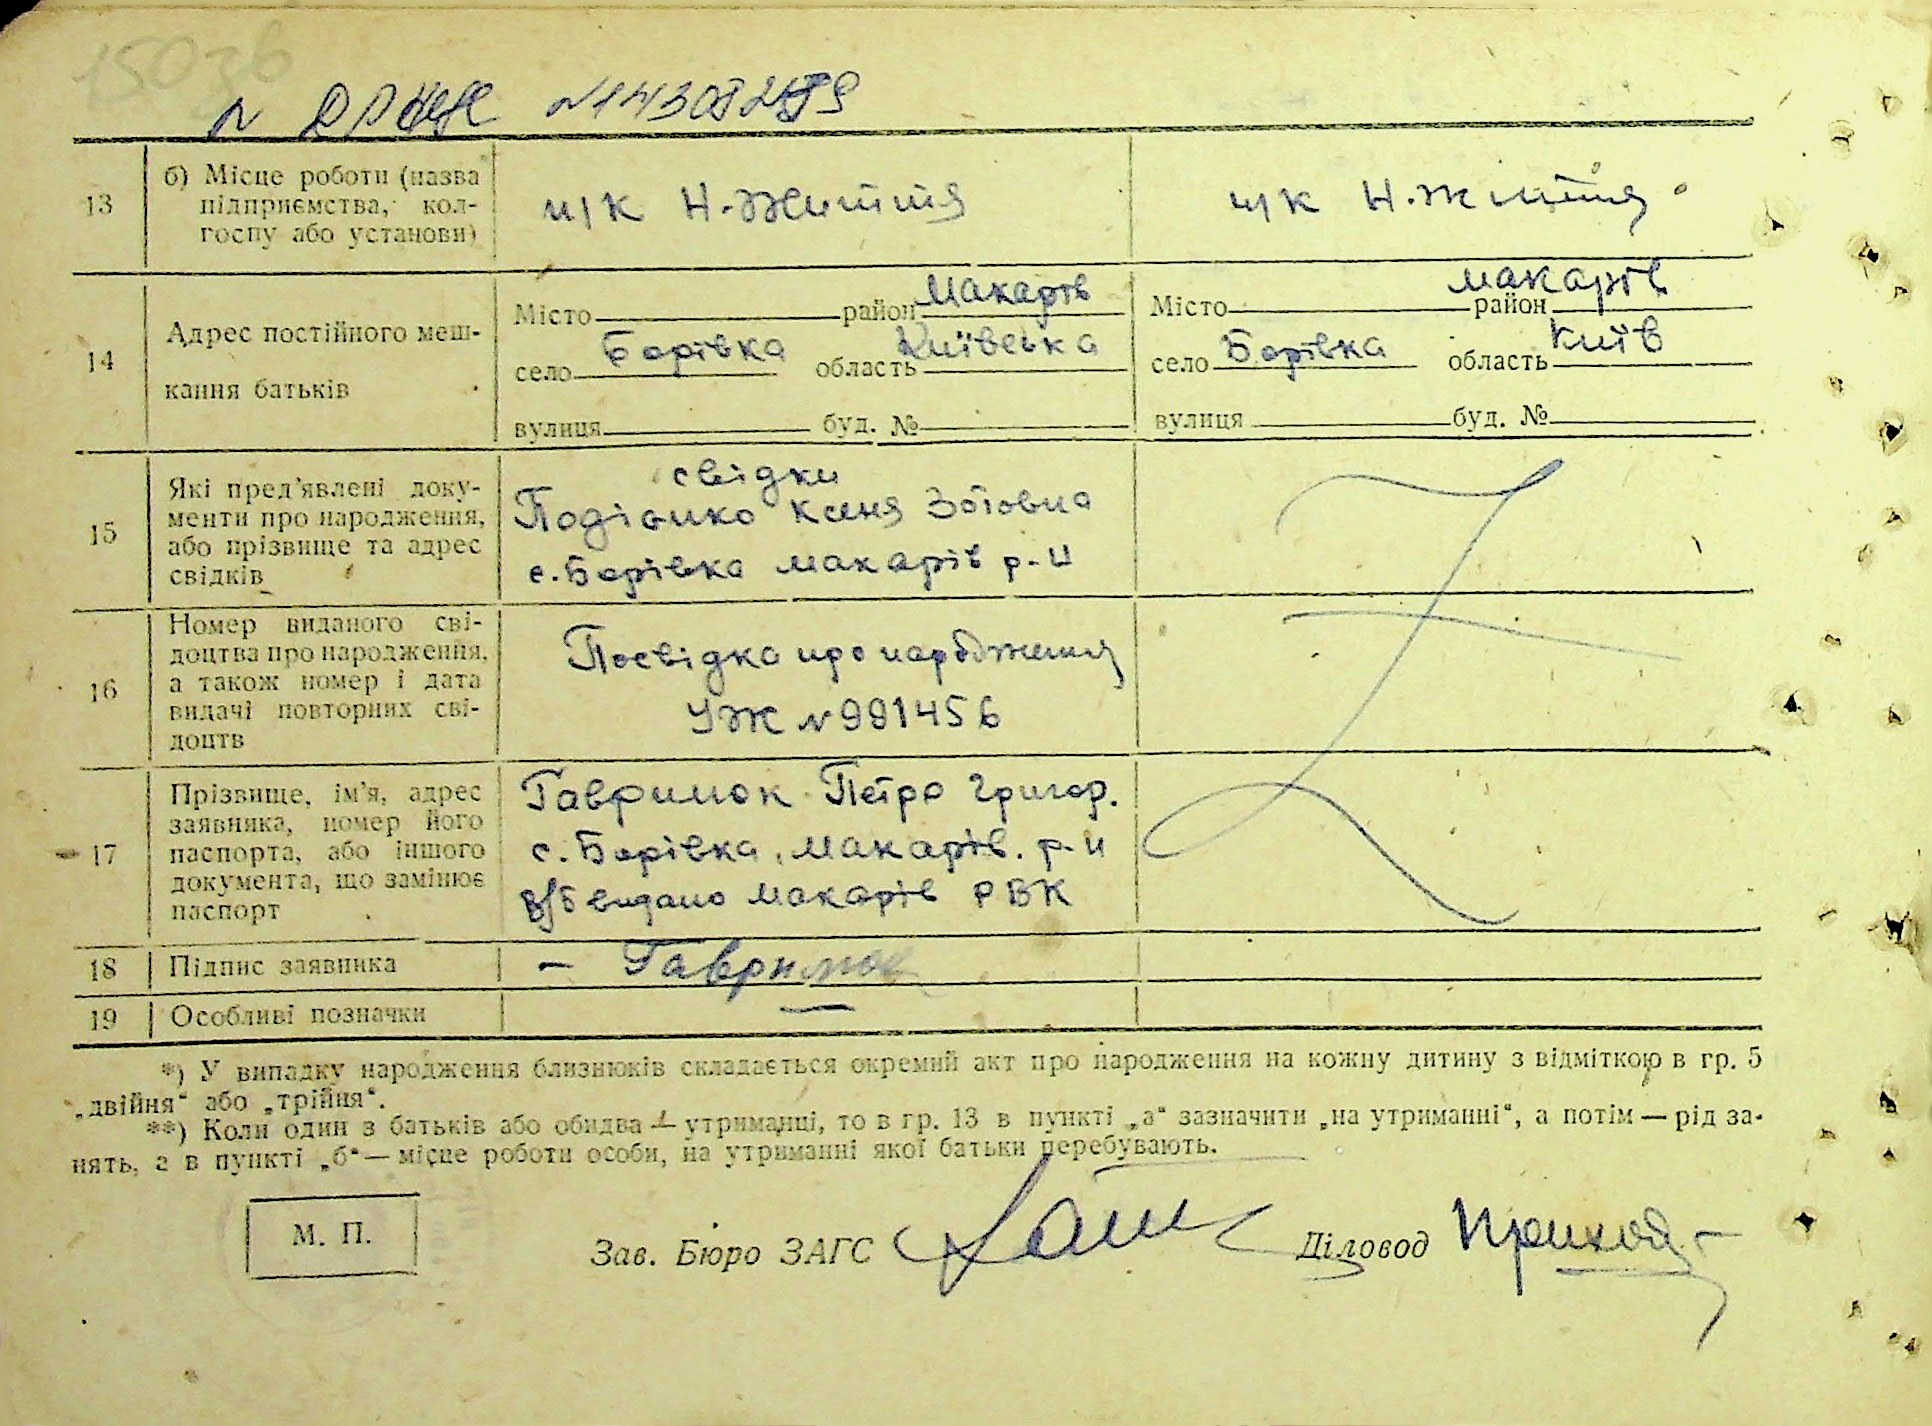 13 б) Місце роботи (назва
підприємства, кол-
госпу або установи)
ч/к Н.-Життя
ч/к Н.Життя
14 Адрес постійного меш-
кання батьків
Місто район Макарів
село Борівка область Київська
вулиця буд. №
Місто район Макарів
село Борівка область Київ
вулиця буд. №
15 Які пред'явлені доку-
менти про народження,
або прізвище та адрес
свідків
свідки
Зотовна
с. Борівка Макарів р-н
16 Номер виданого сві-
доцтва про народження,
а також номер і дата
видачі повторних сві-
доцтв
Посвідка про народження
УЖ № 991456
17 Прізвище, ім'я, адрес
заявника, номер його
паспорта, або іншого
документа, що замінює
паспорт
Гаврилюк Петро Григор.
с. Борівка, Макарів. р-н
в/б видано Макарів РВК
18 Підпис заявника
– Гаврилюк
19 Особливі позначки
*) У випадку народження близнюків складається окремий акт про народження на кожну дитину з відміткою в гр. 5
„двійня“ або „трійня“.
**) Коли один з батьків або обидва — утриманці, то в гр. 13 в пункті „а“ зазначити „на утриманні“, а потім — рід за-
нять, а в пункті „б“ — місце роботи особи, на утриманні якої батьки перебувають.
М. П.
Зав. Бюро ЗАГС
Діловод Приход